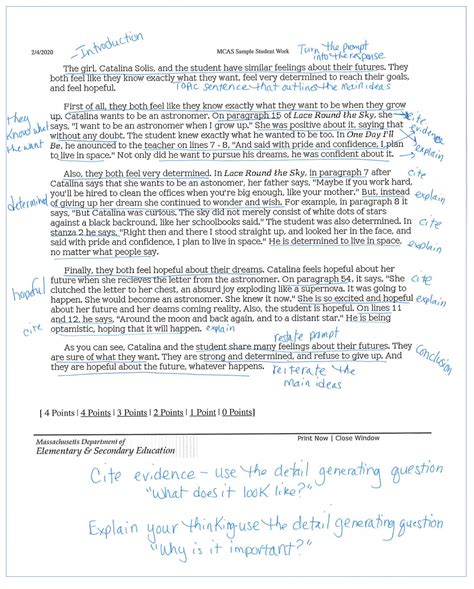 - Introduction
2/4/2020
MCAS Sample Student Work
Turn the prompt
into the response
The girl, Catalina Solis, and the student have similar feelings about their futures. They
both feel like they know exactly what they want, feel very determined to reach their goals,
and feel hopeful.
TOPIC sentence that outlines the main ideas
First of all, they both feel like they know exactly what they want to be when they grow
up. Catalina wants to be an astronomer. On paragraph 15 of Lace Round the Sky, she
says, "I want to be an astronomer when I grow up." She was positive about it, saying that
without any doubt. The student knew exactly what he wanted too. In One Day I'll
Be, he anounced to the teacher on lines 7 - 8, "And said with pride and confidence, I plan
to live in space." Not only did he want to pursue his dreams, he was confident about it.
they
know what
the want
cite
evidence
explain
Also, they both feel very determined. In Lace Round the Sky, in paragraph 7 after
Catalina says that she wants to be an astronomer, her father says, "Maybe if you work hard,
you'll be hired to clean the offices when you're big enough, like your mother." But, instead
of giving up her dream she continued to wonder and wish. For example, in paragraph 8 it
says, "But Catalina was curious. The sky did not merely consist of white dots of stars
against a black background, like her schoolbooks said." The student was also determined. In
stanza 2 he says, "Right then and there I stood straight up, and looked her in the face, and
said with pride and confidence, I plan to live in space." He is determined to live in space,
no matter what people say.
determined
cite
explain
cite
explain
Finally, they both feel hopeful about their dreams. Catalina feels hopeful about her
future when she recieves the letter from the astronomer. On paragraph 54, it says, "She
clutched the letter to her chest, an absurd joy exploding like a supernova. It was going to
happen. She would become an astronomer. She knew it now." She is so excited and hopeful
about her future and her deams coming reality. Also, the student is hopeful. On lines 11
and 12, he says, "Around the moon and back again, and to a distant star." He is being
optamistic, hoping that it will happen.
explain
hopeful
cite
cite
explain
restate prompt
As you can see, Catalina and the student share many feelings about their futures. They
are sure of what they want. They are strong and determined, and refuse to give up. And
they are hopeful about the future, whatever happens.
reiterate the
main ideas
Conclusion
[ 4 Points | 4 Points | 3 Points | 2 Points | 1 Point | 0 Points]
Massachusetts Department of
Elementary & Secondary Education
Print Now | Close Window
Cite evidence - use the detail generating question
"What does it look like?"
Explain your thinking use the detail generating question
"Why is it important?"